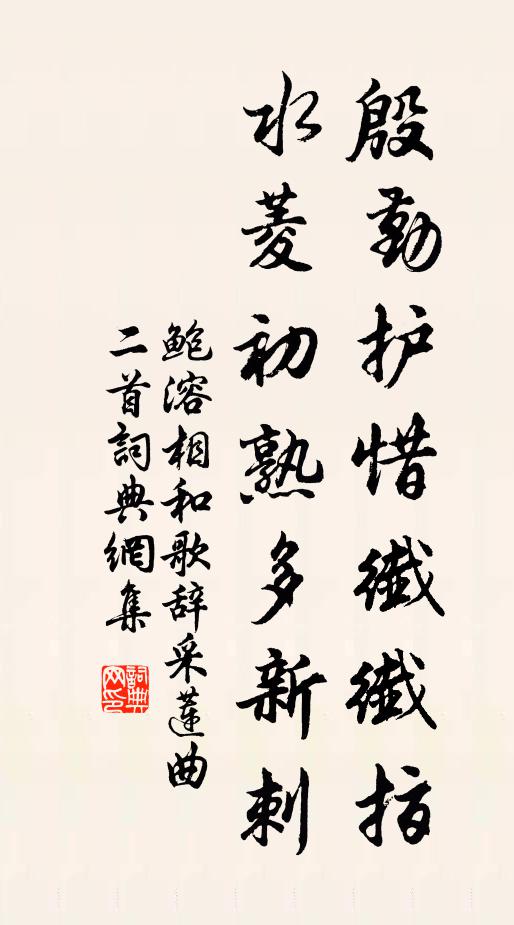 殷勤护惜纖纖指
水菱初熟多新刺
鲍溶相和歌辞采蓮曲
二首詞典網集
詞典网印